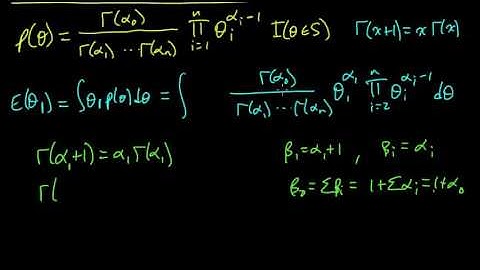 p(θ) = Γ(α₀) / (Γ(α₁) ⋯ Γ(αₙ)) ∏ᵢ₌₁ⁿ θᵢ^(αᵢ−1) I(θ∈S)    Γ(x+1) = x Γ(x)
E(θ₁) = ∫θ₁ p(θ) dθ = ∫ Γ(α₀) / (Γ(α₁) ⋯ Γ(αₙ)) θ₁^(α₁) ∏ᵢ₌₂ⁿ θᵢ^(αᵢ−1) dθ
Γ(α₁+1) = α₁ Γ(α₁)    β₁ = α₁+1 , βᵢ = αᵢ
Γ(    β₀ = Σβᵢ = 1+Σαᵢ = 1+α₀